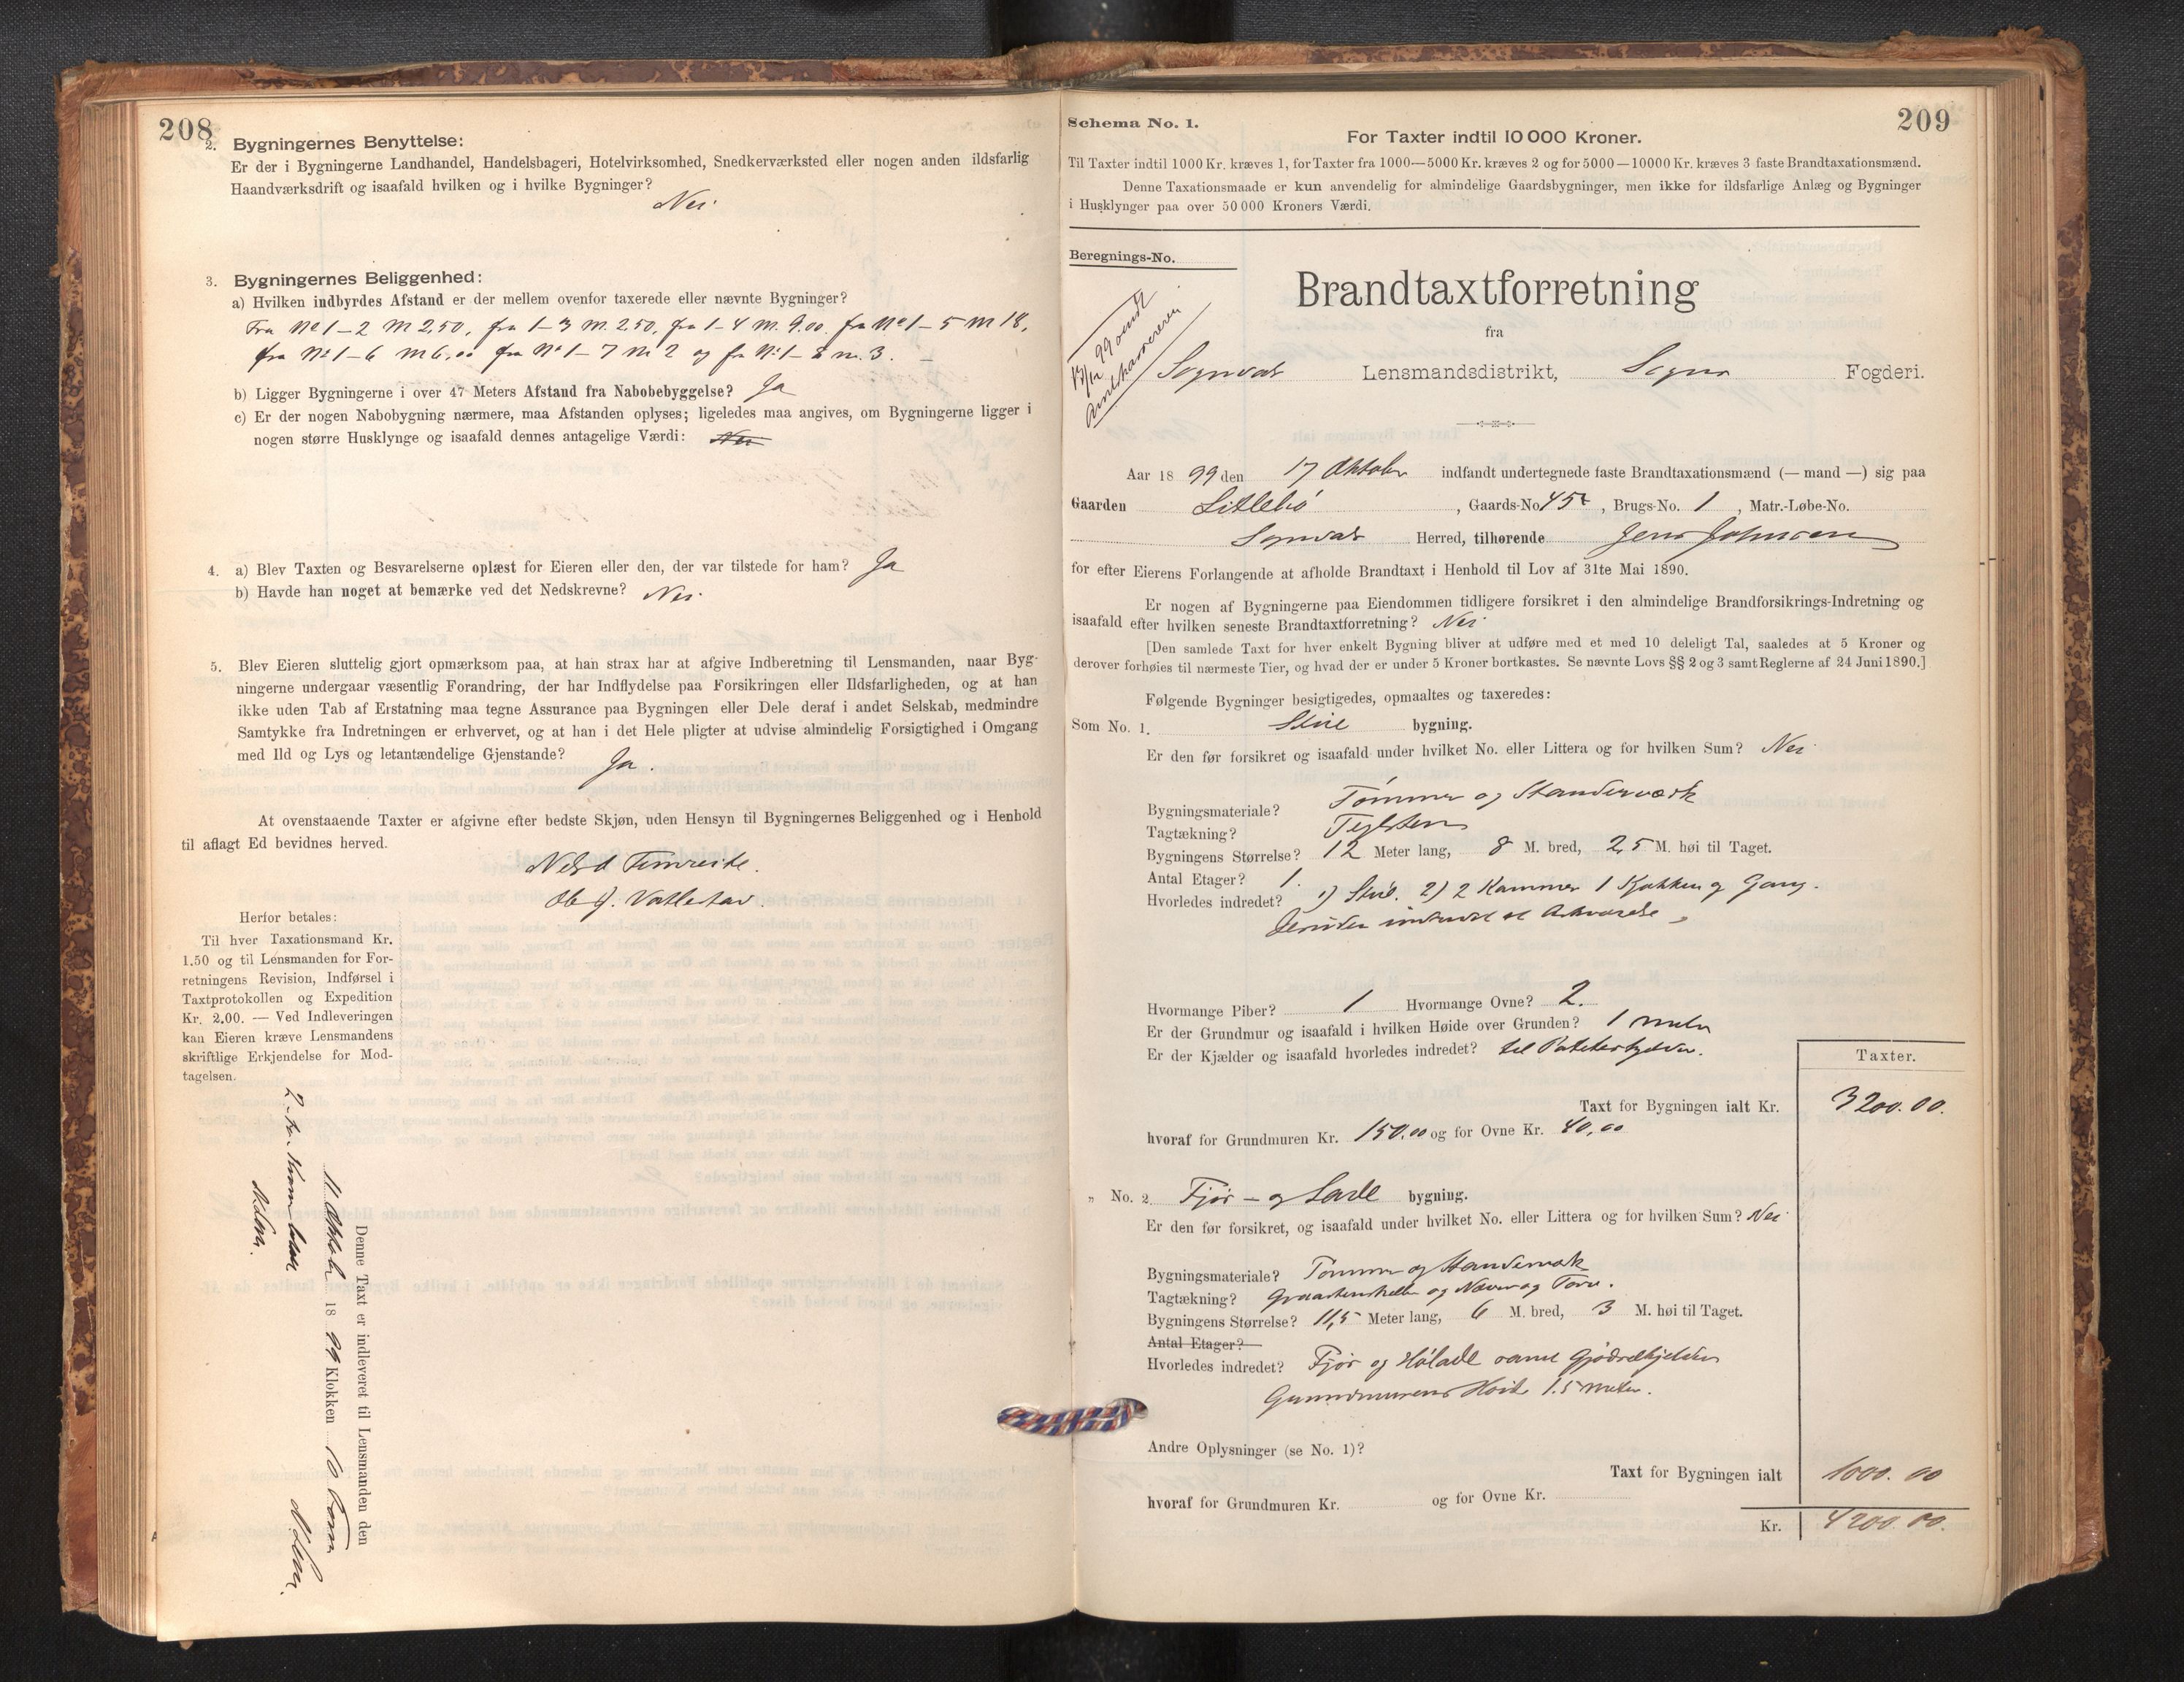 208
2. Bygningernes Benyttelse:
Er der i Bygningerne Landhandel, Handelsbageri, Hotelvirksomhed, Snedkerværksted eller nogen anden ildsfarlig
Haandværksdrift og isaafald hvilken og i hvilke Bygninger?
Nei.
3. Bygningernes Beliggenhed:
a) Hvilken indbyrdes Afstand er der mellem ovenfor taxerede eller nævnte Bygninger?
Fra No 1–2 M 2,50, fra 1–3 M. 2.50, fra 1–4 M. 9.00. fra No 1–5 M 18,
fra No 1–6 M 6,00 fra No 1–7 M 2 og fr No 1–8 m. 3. –
b) Ligger Bygningerne i over 47 Meters Afstand fra Nabobebyggelse? Ja
c) Er der nogen Nabobygning nærmere, maa Afstanden oplyses; ligeledes maa angives, om Bygningerne ligger i
nogen større Husklynge og isaafald dennes antagelige Værdi: Nei
4. a) Blev Taxten og Besvarelserne oplæst for Eieren eller den, der var tilstede for ham? Ja
b) Havde han noget at bemærke ved det Nedskrevne? Nei.
5. Blev Eieren sluttelig gjort opmærksom paa, at han strax har at afgive Indberetning til Lensmanden, naar Byg-
ningerne undergaar væsentlig Forandring, der har Indflydelse paa Forsikringen eller Ildsfarligheden, og at han
ikke uden Tab af Erstatning maa tegne Assurance paa Bygningen eller Dele deraf i andet Selskab, medmindre
Samtykke fra Indretningen er erhvervet, og at han i det Hele pligter at udvise almindelig Forsigtighed i Omgang
med Ild og Lys og letantændelige Gjenstande? Ja.
At ovenstaaende Taxter er afgivne efter bedste Skjøn, uden Hensyn til Bygningernes Beliggenhed og i Henhold
til aflagt Ed bevidnes herved.
Timreite.
Ole J. Vatlestad.
Herfor betales:
Til hver Taxationsmand Kr.
1.50 og til Lensmanden for For-
retningens Revision, Indførsel i
Taxtprotokollen og Expedition
Kr. 2.00. — Ved Indleveringen
kan Eieren kræve Lensmandens
skriftlige Erkjendelse for Mod-
tagelsen.
Denne Taxt er indleveret til Lensmanden den
11 Oktober 18 99 Klokken 10 Form
209
Schema No. 1.
For Taxter indtil 10 000 Kroner.
Til Taxter indtil 1000 Kr. kræves 1, for Taxter fra 1000—5000 Kr. kræves 2 og for 5000—10000 Kr. kræves 3 faste Brandtaxationsmænd.
Denne Taxationsmaade er kun anvendelig for almindelige Gaardsbygninger, men ikke for ildsfarlige Anlæg og Bygninger
i Husklynger paa over 50 000 Kroners Værdi.
Beregnings-No.
13/12 99 sendt
Amtskassereren
Brandtaxtforretning
fra
Sogndal Lensmandsdistrikt, Sogns Fogderi.
Aar 18 99 den 17 Oktober indfandt undertegnede faste Brandtaxationsmænd (— mand —) sig paa
Gaarden Litlebø, Gaards-No 45, Brugs-No. 1, Matr.-Løbe-No.
Sogndal Herred, tilhørende Jens Johnsen
for efter Eierens Forlangende at afholde Brandtaxt i Henhold til Lov af 31te Mai 1890.
Er nogen af Bygningerne paa Eiendommen tidligere forsikret i den almindelige Brandforsikrings-Indretning og
isaafald efter hvilken seneste Brandtaxtforretning? Nei
[Den samlede Taxt for hver enkelt Bygning bliver at udføre med et med 10 deleligt Tal, saaledes at 5 Kroner og
derover forhøies til nærmeste Tier, og hvad der er under 5 Kroner bortkastes. Se nævnte Lovs §§ 2 og 3 samt Reglerne af 24 Juni 1890.]
Følgende Bygninger besigtigedes, opmaaltes og taxeredes:
Som No. 1. Stue bygning.
Er den før forsikret og isaafald under hvilket No. eller Littera og for hvilken Sum? Nei
Bygningsmateriale? Tømmer og Standerværk
Tagtækning? Teglsten
Bygningens Størrelse? 12 Meter lang, 8 M. bred, 2,5 M. høi til Taget.
Antal Etager? 1.
Hvorledes indredet? 1) Stue. 2) 2 Kammer 1 Kjøkken og Gang.
Hvormange Piber? 1 Hvormange Ovne? 2.
Er der Grundmur og isaafald i hvilken Høide over Grunden? 1 meter
Er der Kjælder og isaafald hvorledes indredet? til Potetkjelder.
Taxter.
Taxt for Bygningen ialt Kr. 3200.00.
hvoraf for Grundmuren Kr. 150.00 og for Ovne Kr. 40,00
„ No. 2. Fjøs – og Lade bygning.
Er den før forsikret, og isaafald under hvilket No. eller Littera og for hvilken Sum? Nei
Bygningsmateriale? Tømmer og Standerværk
Tagtækning? Graastensheller og Næver og Torv.
Bygningens Størrelse? 11,5 Meter lang, 6 M. bred, 3 M. høi til Taget.
Antal Etager?
Hvorledes indredet? Fjøs og Hølade samt Gjødselkjelder
Grundmurens Høide 1.5 meter.
Andre Oplysninger (se No. 1)?
Taxt for Bygningen ialt 1000.00
hvoraf for Grundmuren Kr. og for Ovne Kr.
Kr. 4200.00.